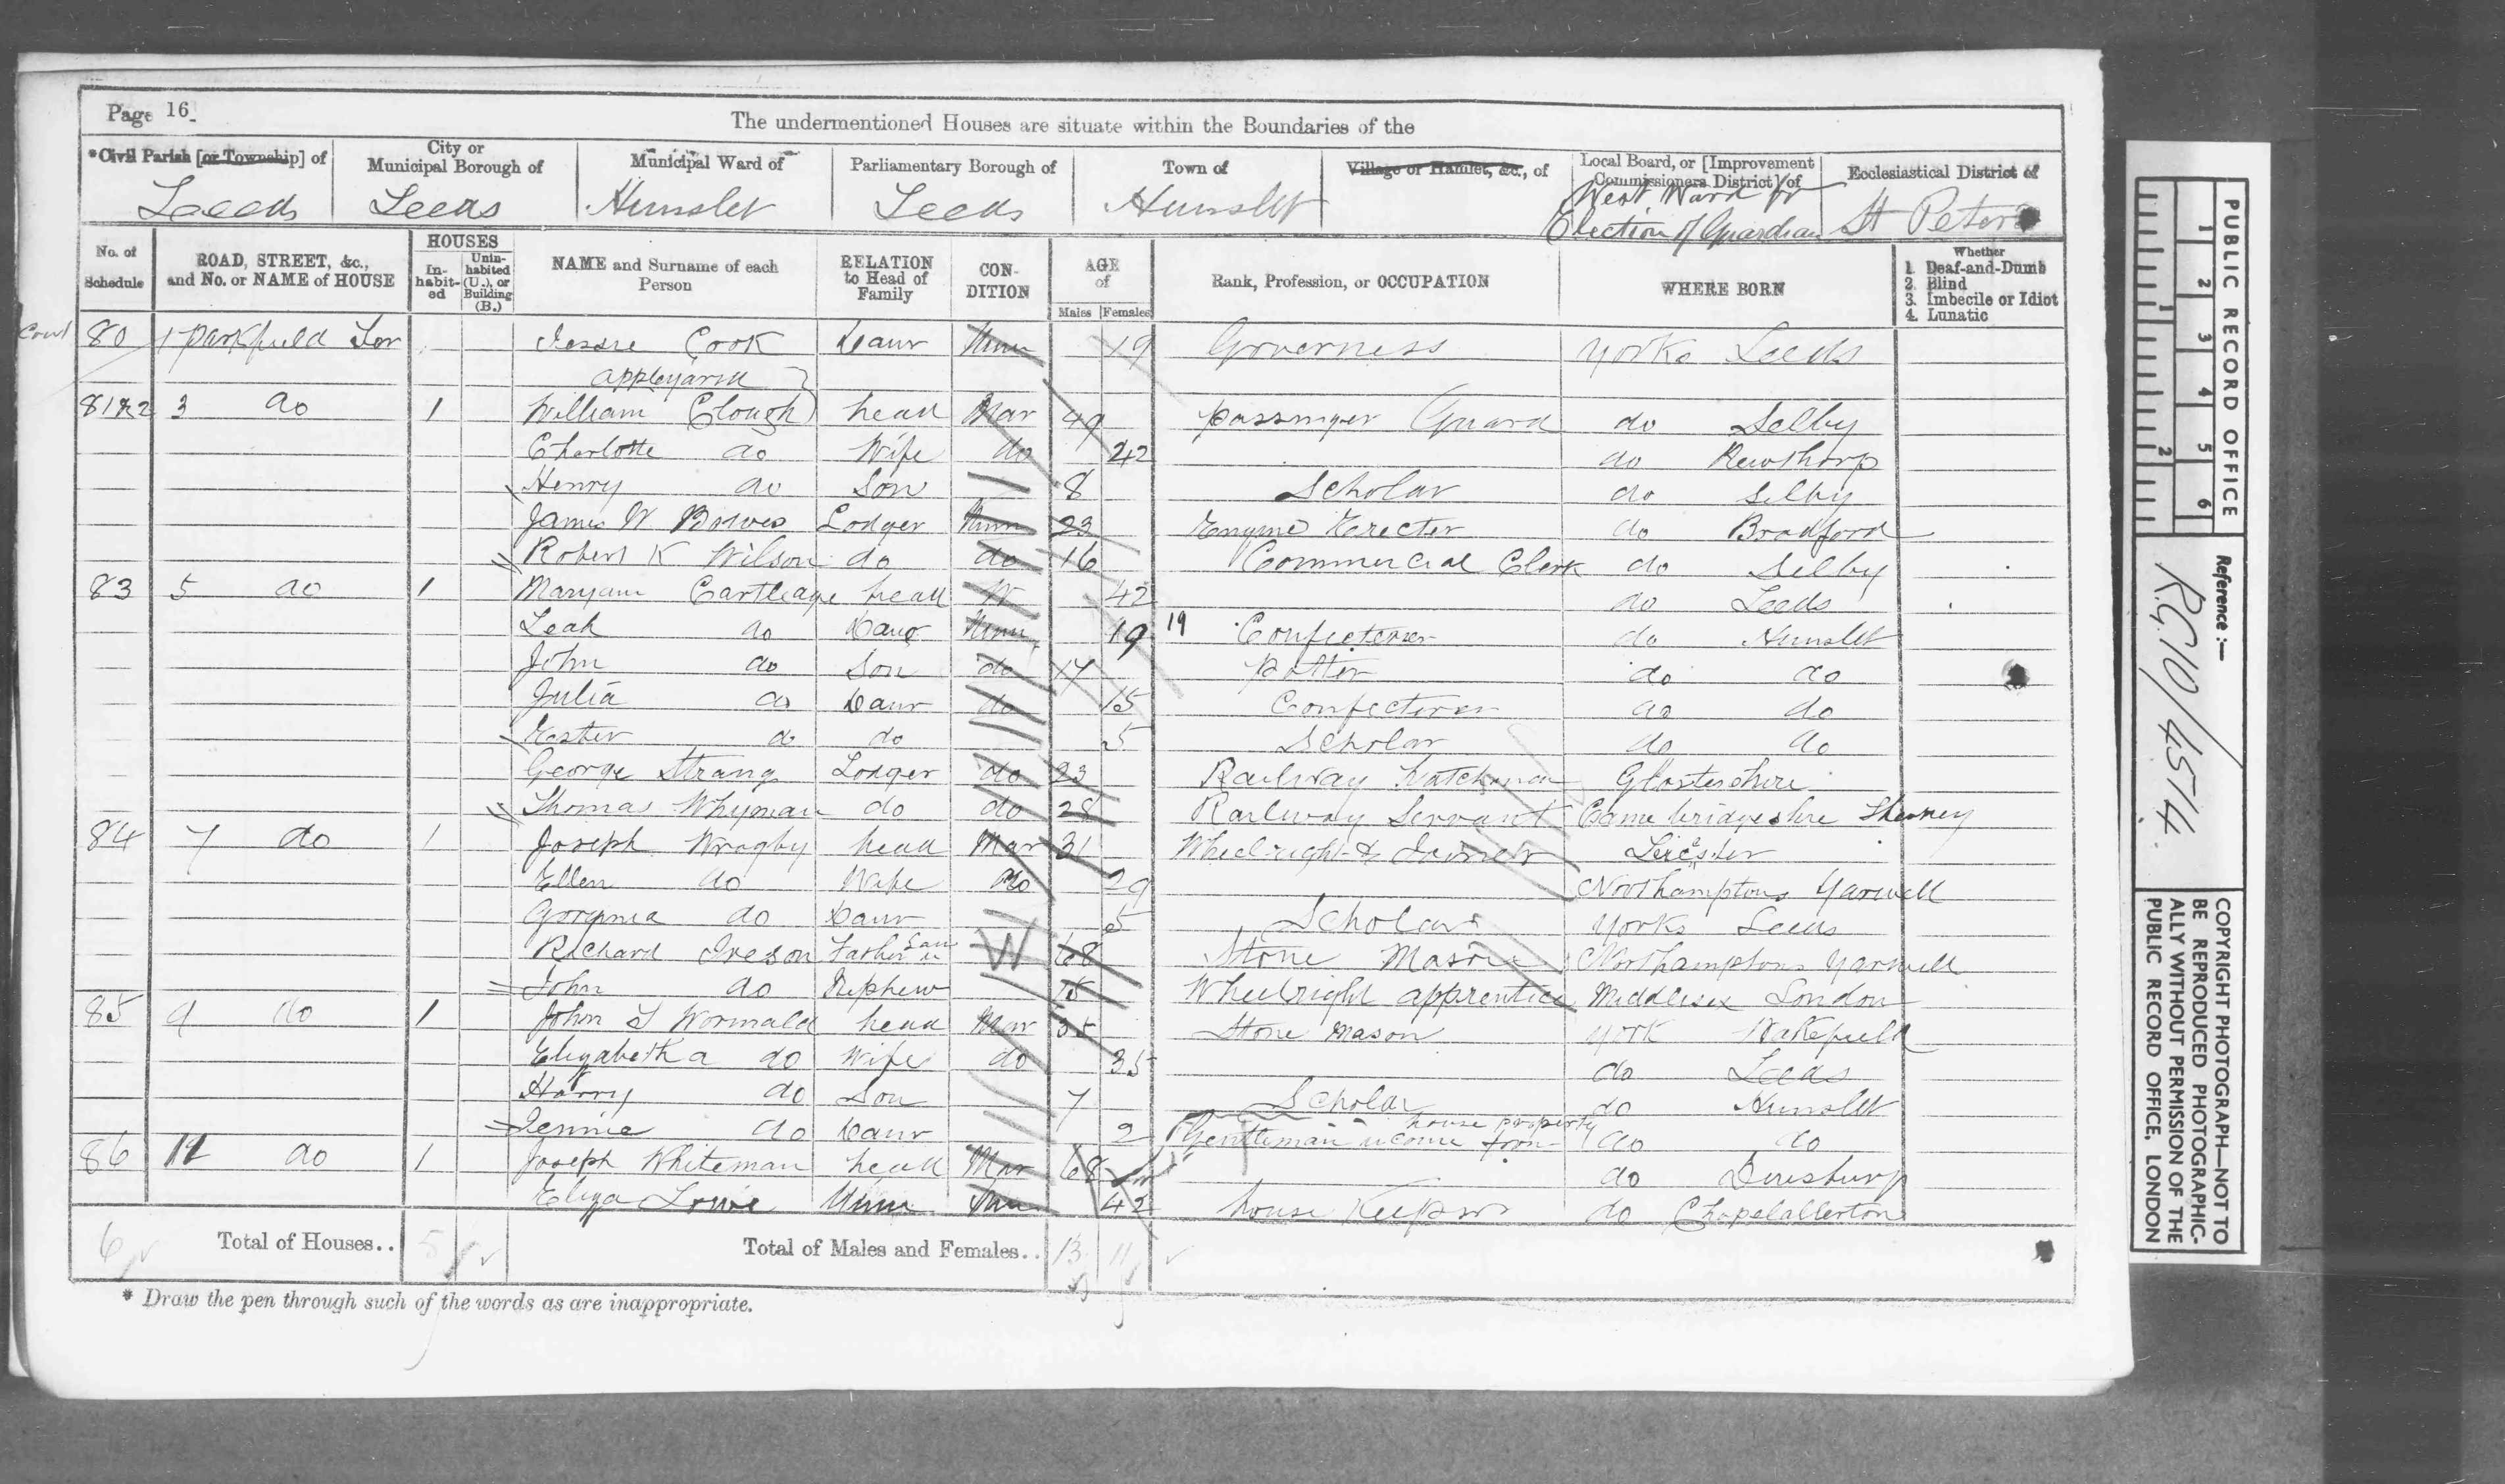 Page 16
The undermentioned Houses are situate within the Boundaries of the
*Civil Parish [or Township] of City or Municipal Borough of Municipal Ward of Parliamentary Borough of Town of Village or Hamlet, &c., of Local Board, or [Improvement Commissioners District] of Ecclesiastical District of
Leeds Leeds Hunslet Leeds Hunslet West Ward for Election of Guardian St Peters
No. of Schedule ROAD, STREET, &c., and No. or NAME of HOUSE HOUSES Inhabited Uninhabited (U.), or Building (B.) NAME and Surname of each Person RELATION to Head of Family CONDITION AGE of Males Females Rank, Profession, or OCCUPATION WHERE BORN Whether 1. Deaf-and-Dumb 2. Blind 3. Imbecile or Idiot 4. Lunatic
80 1 Parkfield Ter Jessie Cook Daur Unm 19 Governess Yorks Leeds
Appleyard
81&2 3 do 1 William Clough head Mar 49 passenger Guard do Selby
Charlotte do Wife do 42 do
Henry do Son 8 Scholar do Selby
James W Lodger Unm 23 Engine Erecter do Bradford
Robert K Wilson do do 16 Commercial Clerk do Selby
83 5 do 1 Maryann Cartleage head W 42 do Leeds
Leah do Daur Unm 19 19 Confectioner do Hunslet
John do Son do 17 Potter do do
Julia do Daur do 15 Confectioner do do
Ester do do 5 Scholar do do
George Strang Lodger do 23 Railway Watchman Glostershire
Thomas Whyman do do 28 Railway Servant Cambridgeshire
84 7 do 1 Joseph Wragby head Mar 31 Wheelright & Joiner Leicester
Ellen do Wife do 29 Northamptons Yarwell
do Daur 5 Scholar Yorks Leeds
Richard Ireson Father in Law W 68 Stone Mason Northamptons Yarwell
John do Nephew 15 Wheelright apprentice Middlesex London
85 9 do 1 John Wormald head Mar 35 Stone Mason York Wakefield
Elizabeth a do Wife do 35 do Leeds
Harry do Son 7 Scholar do Hunslet
Jennie do Daur 2 do do
86 11 do 1 Joseph Whiteman head Mar 68 Gentleman income from house property do Dewsbury
Eliza Lowe Unm 42 house Keeper do Chapelallerton
6 Total of Houses.. 5 Total of Males and Females.. 13 11
* Draw the pen through such of the words as are inappropriate.
PUBLIC RECORD OFFICE
1 2 3 4 5 6
1 2
Reference :—
R.G.10/4514
COPYRIGHT PHOTOGRAPH—NOT TO
BE REPRODUCED PHOTOGRAPHIC-
ALLY WITHOUT PERMISSION OF THE
PUBLIC RECORD OFFICE, LONDON